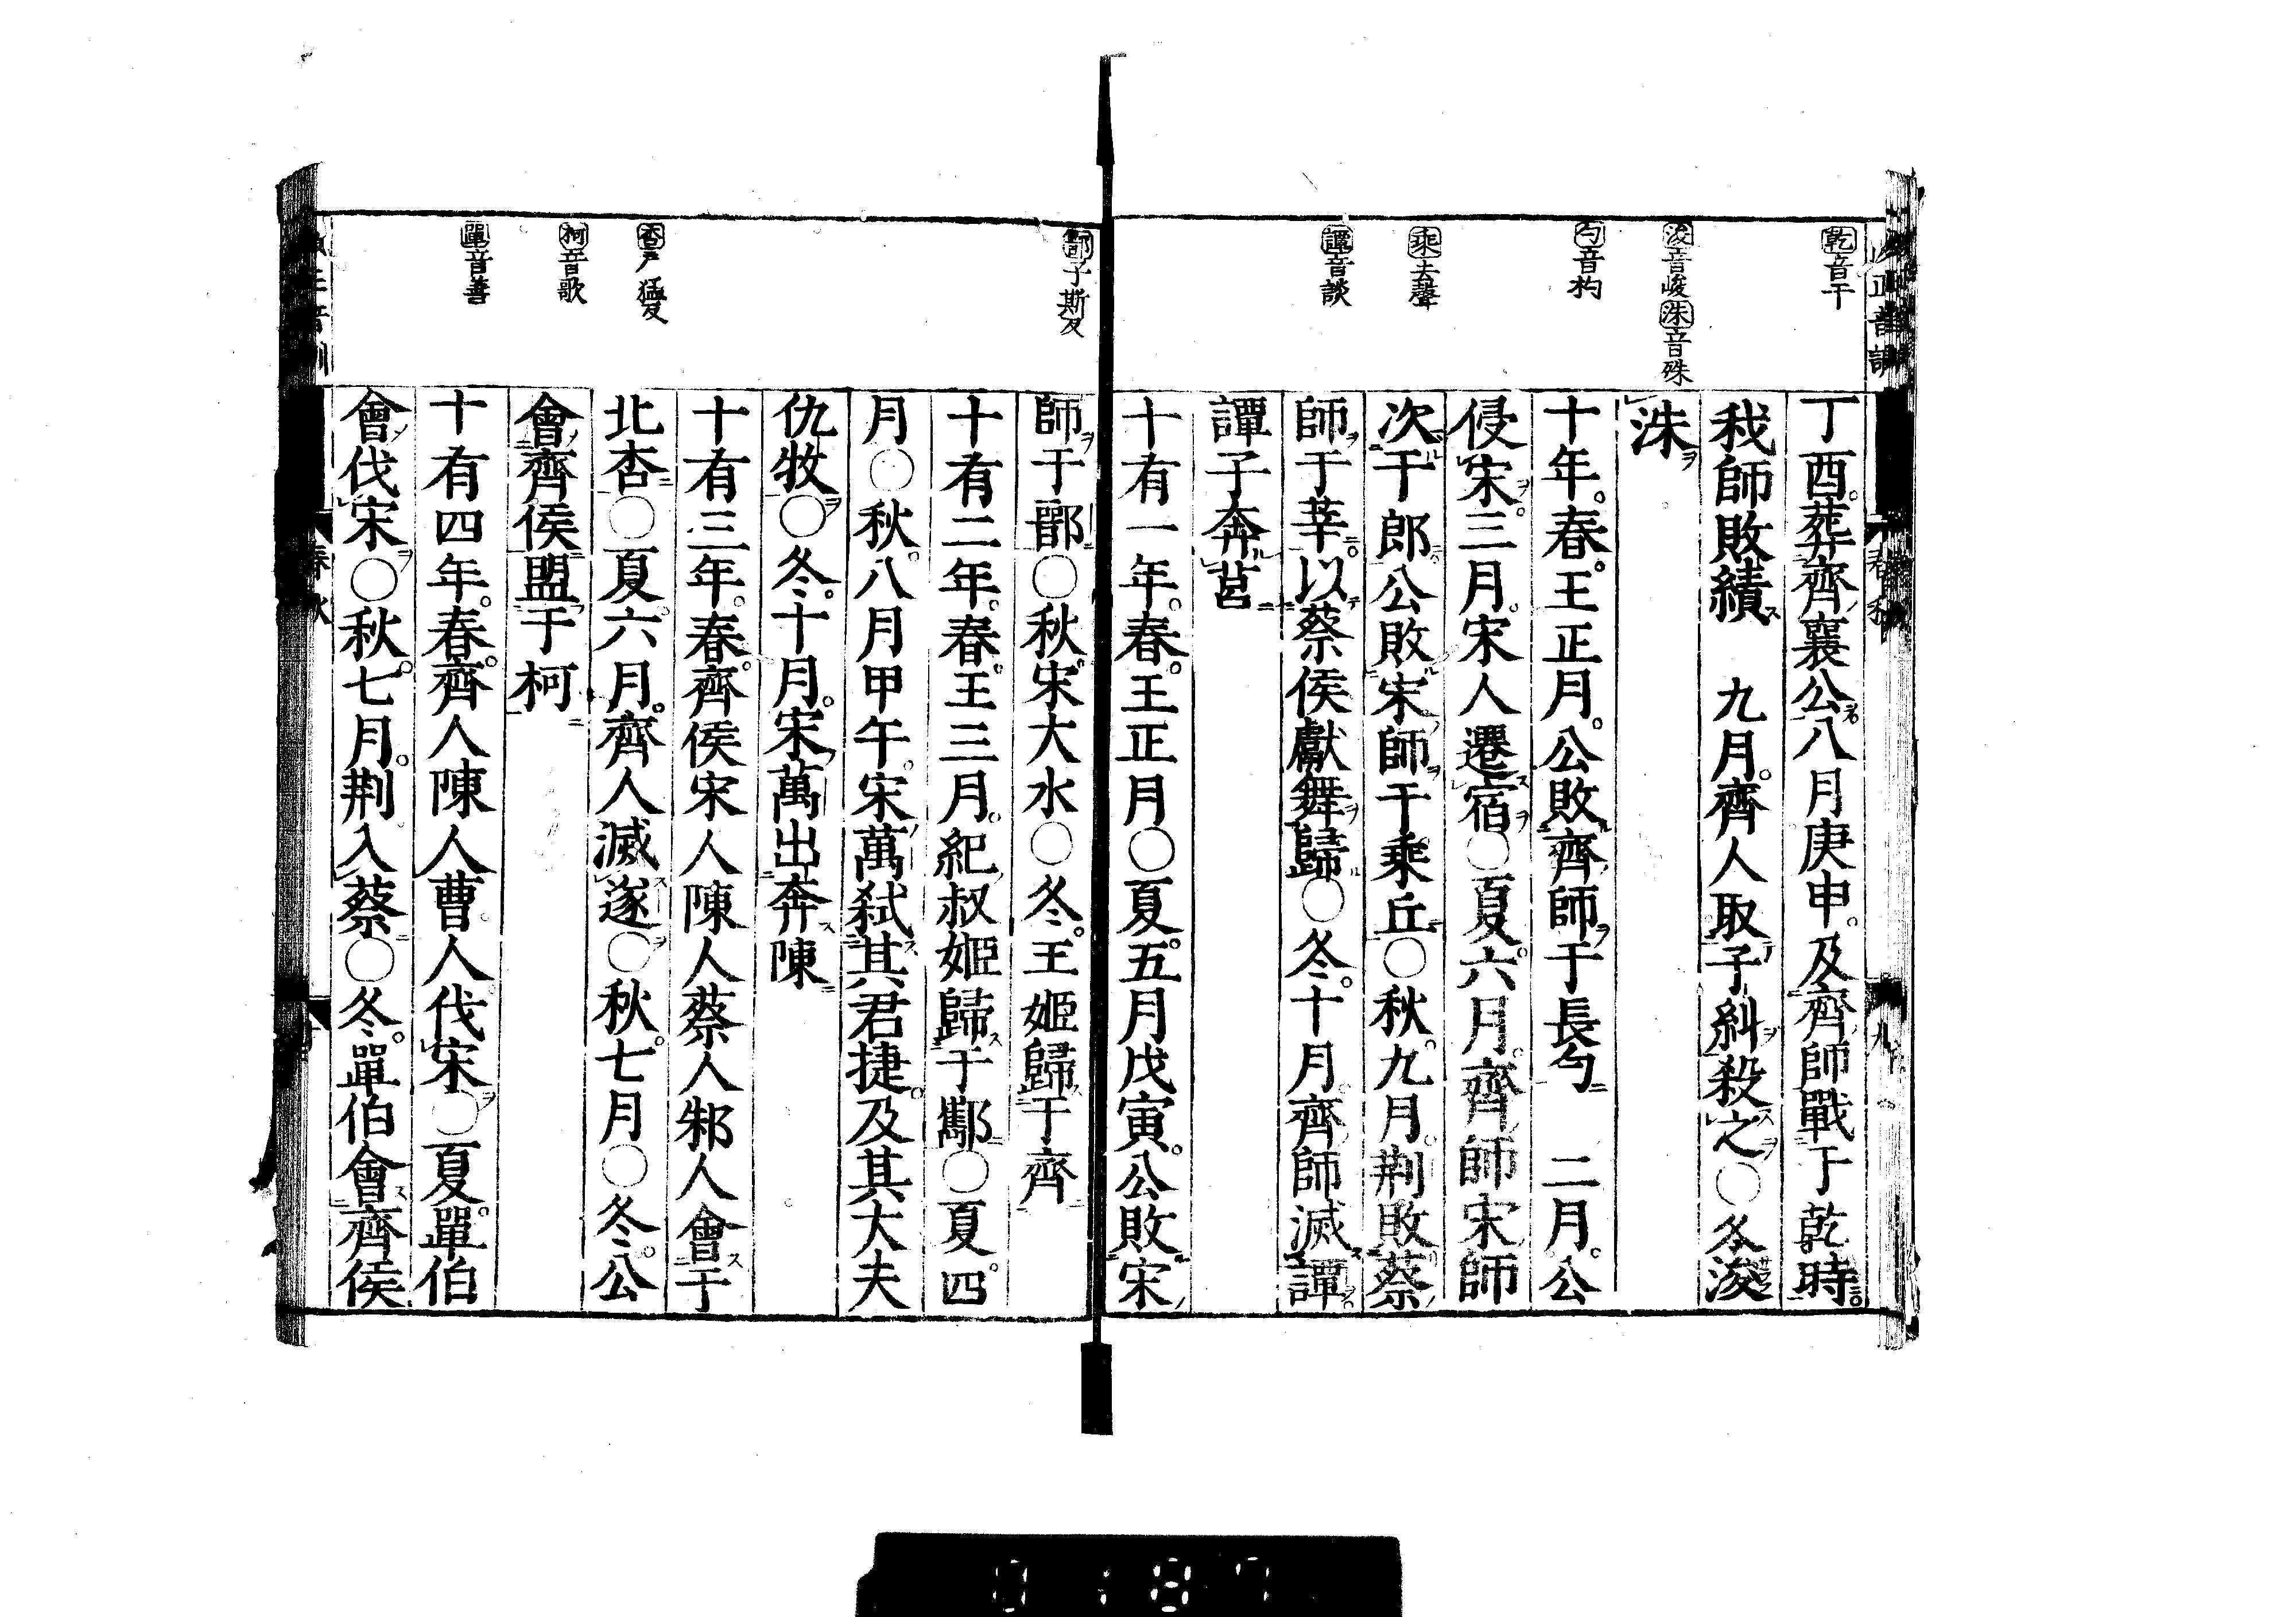 乾音干
浚音峻洙音殊
勺音杓
乘去聲
譚音談
丁酉。葬齊襄公八月庚申。及齊師戰于乾時。
我師敗績　九月。齊人取子糾殺之○冬浚
洙
十年。春。王正月。公敗齊師于長勺　二月。公
侵宋。三月。宋人遷宿○夏六月。齊師宋師
次于郎。公敗宋師于乘丘○秋。九月。荆敗蔡
師于莘。以蔡侯獻舞歸○冬。十月。齊師滅譚
譚子奔莒
十有一年。春。王正月○夏。五月戊寅。公敗宋
鄑子斯反
杏戸猛反
柯音歌
單音善
師于鄑○秋宋大水○冬。王姬歸于齊
十有二年。春。王三月。紀叔姬歸于酅○夏。四
月○秋。八月甲午。宋萬弑其君捷。及其大夫
仇牧○冬。十月。宋萬出奔陳
十有三年。春。齊侯宋人陳人蔡人邾人會于
北杏○夏六月。齊人滅遂○秋。七月○冬。公
會齊侯盟于柯
十有四年。春。齊人陳人曹人伐宋○夏。單伯
會伐宋○秋。七月。荆入蔡○冬。單伯會齊侯
春秋
0187